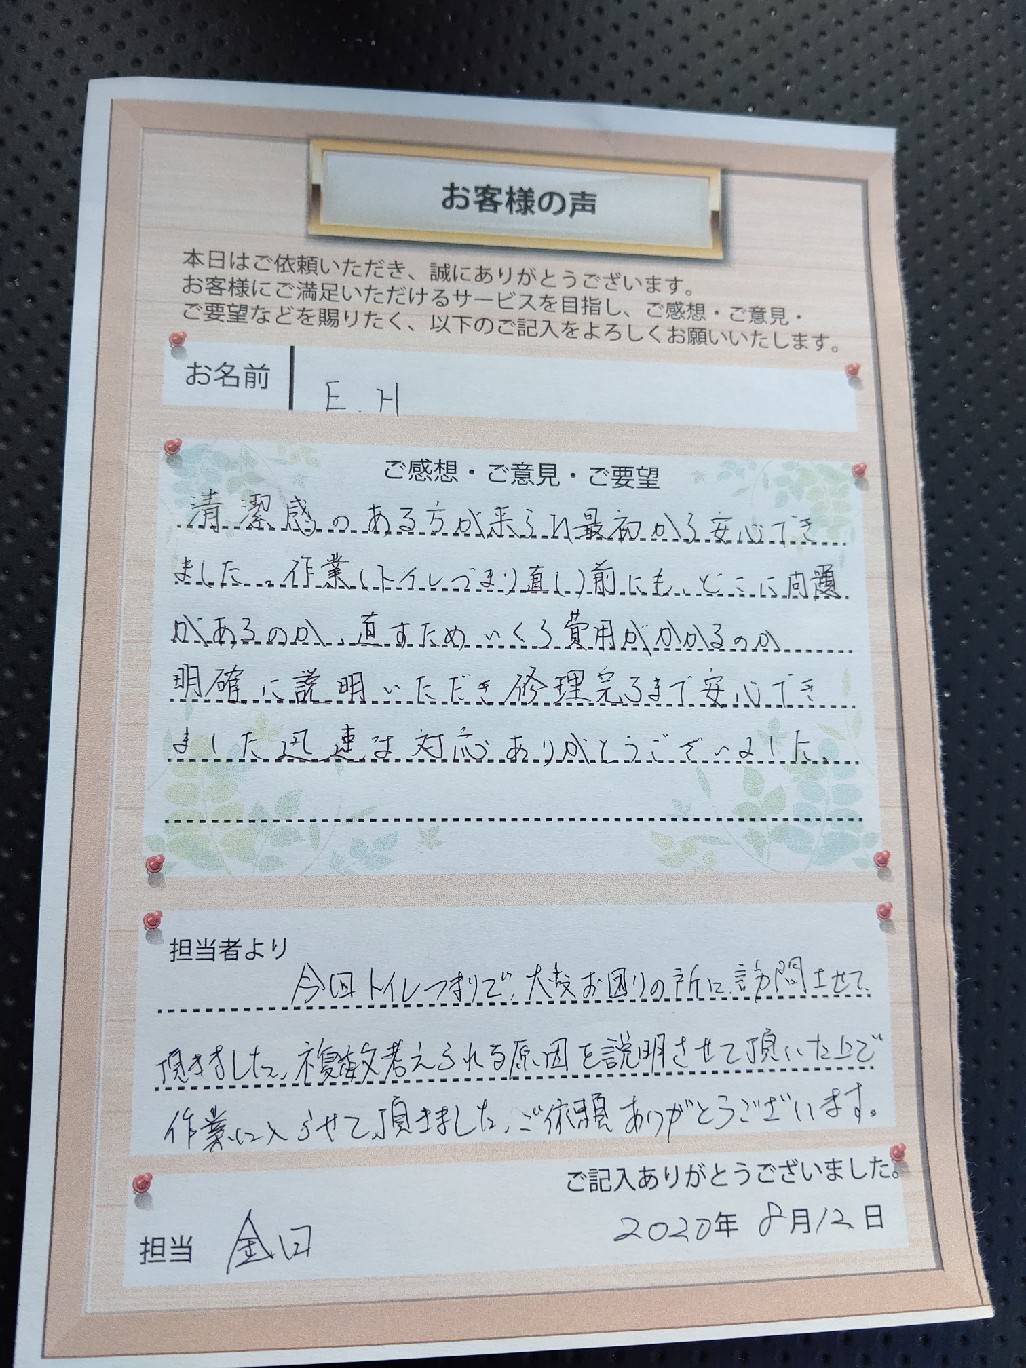 お客様の声
本日はご依頼いただき、誠にありがとうございます。
お客様にご満足いただけるサービスを目指し、ご感想・ご意見・
ご要望などを賜りたく、以下のご記入をよろしくお願いいたします。
お名前 E.H
ご感想・ご意見・ご要望
清潔感のある方が来られ最初から安心でき
ました。作業(トイレづまり直し)前にも、どこに問題
があるのか、直すためいくら費用がかかるのか
明確に説明いただき修理完了まで安心でき
ました迅速な対応ありがとうございました。
担当者より
今回トイレつまりで、大変お困りの所に訪問させて
頂きました。複数考えられる原因を説明させて頂いた上で
作業に入らせて頂きました。ご依頼ありがとうございます。
ご記入ありがとうございました。
担当
2020年 8月12日